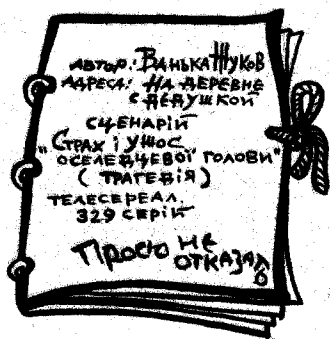 Автор: Ванька Жуков
Адреса: На деревне
с дедушкой
сценарій
"Страх і ужос
оселедцевої голови"
(трагедія)
телесереал.
329 серій
Просю не
отказадь